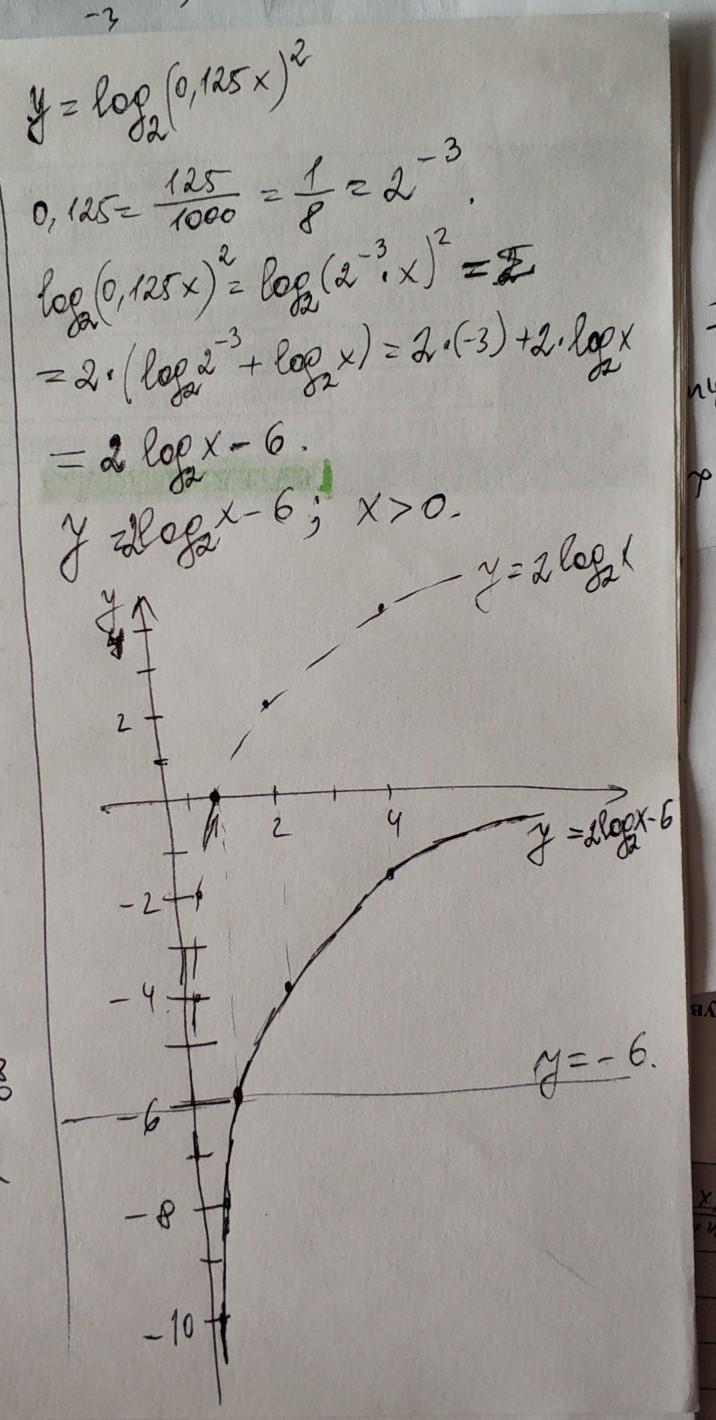 -3
y = log₂(0,125x)²
0,125 = 125/1000 = 1/8 = 2⁻³.
log₂(0,125x)² = log₂(2⁻³·x)² =
= 2·(log₂2⁻³ + log₂x) = 2·(-3) + 2·log₂x
= 2 log₂x - 6.
y = 2log₂x - 6; x > 0.
y = 2 log₂x
y
4
2
1 2 4
y = 2log₂x - 6
-2
-4
y = -6.
-6
-8
-10